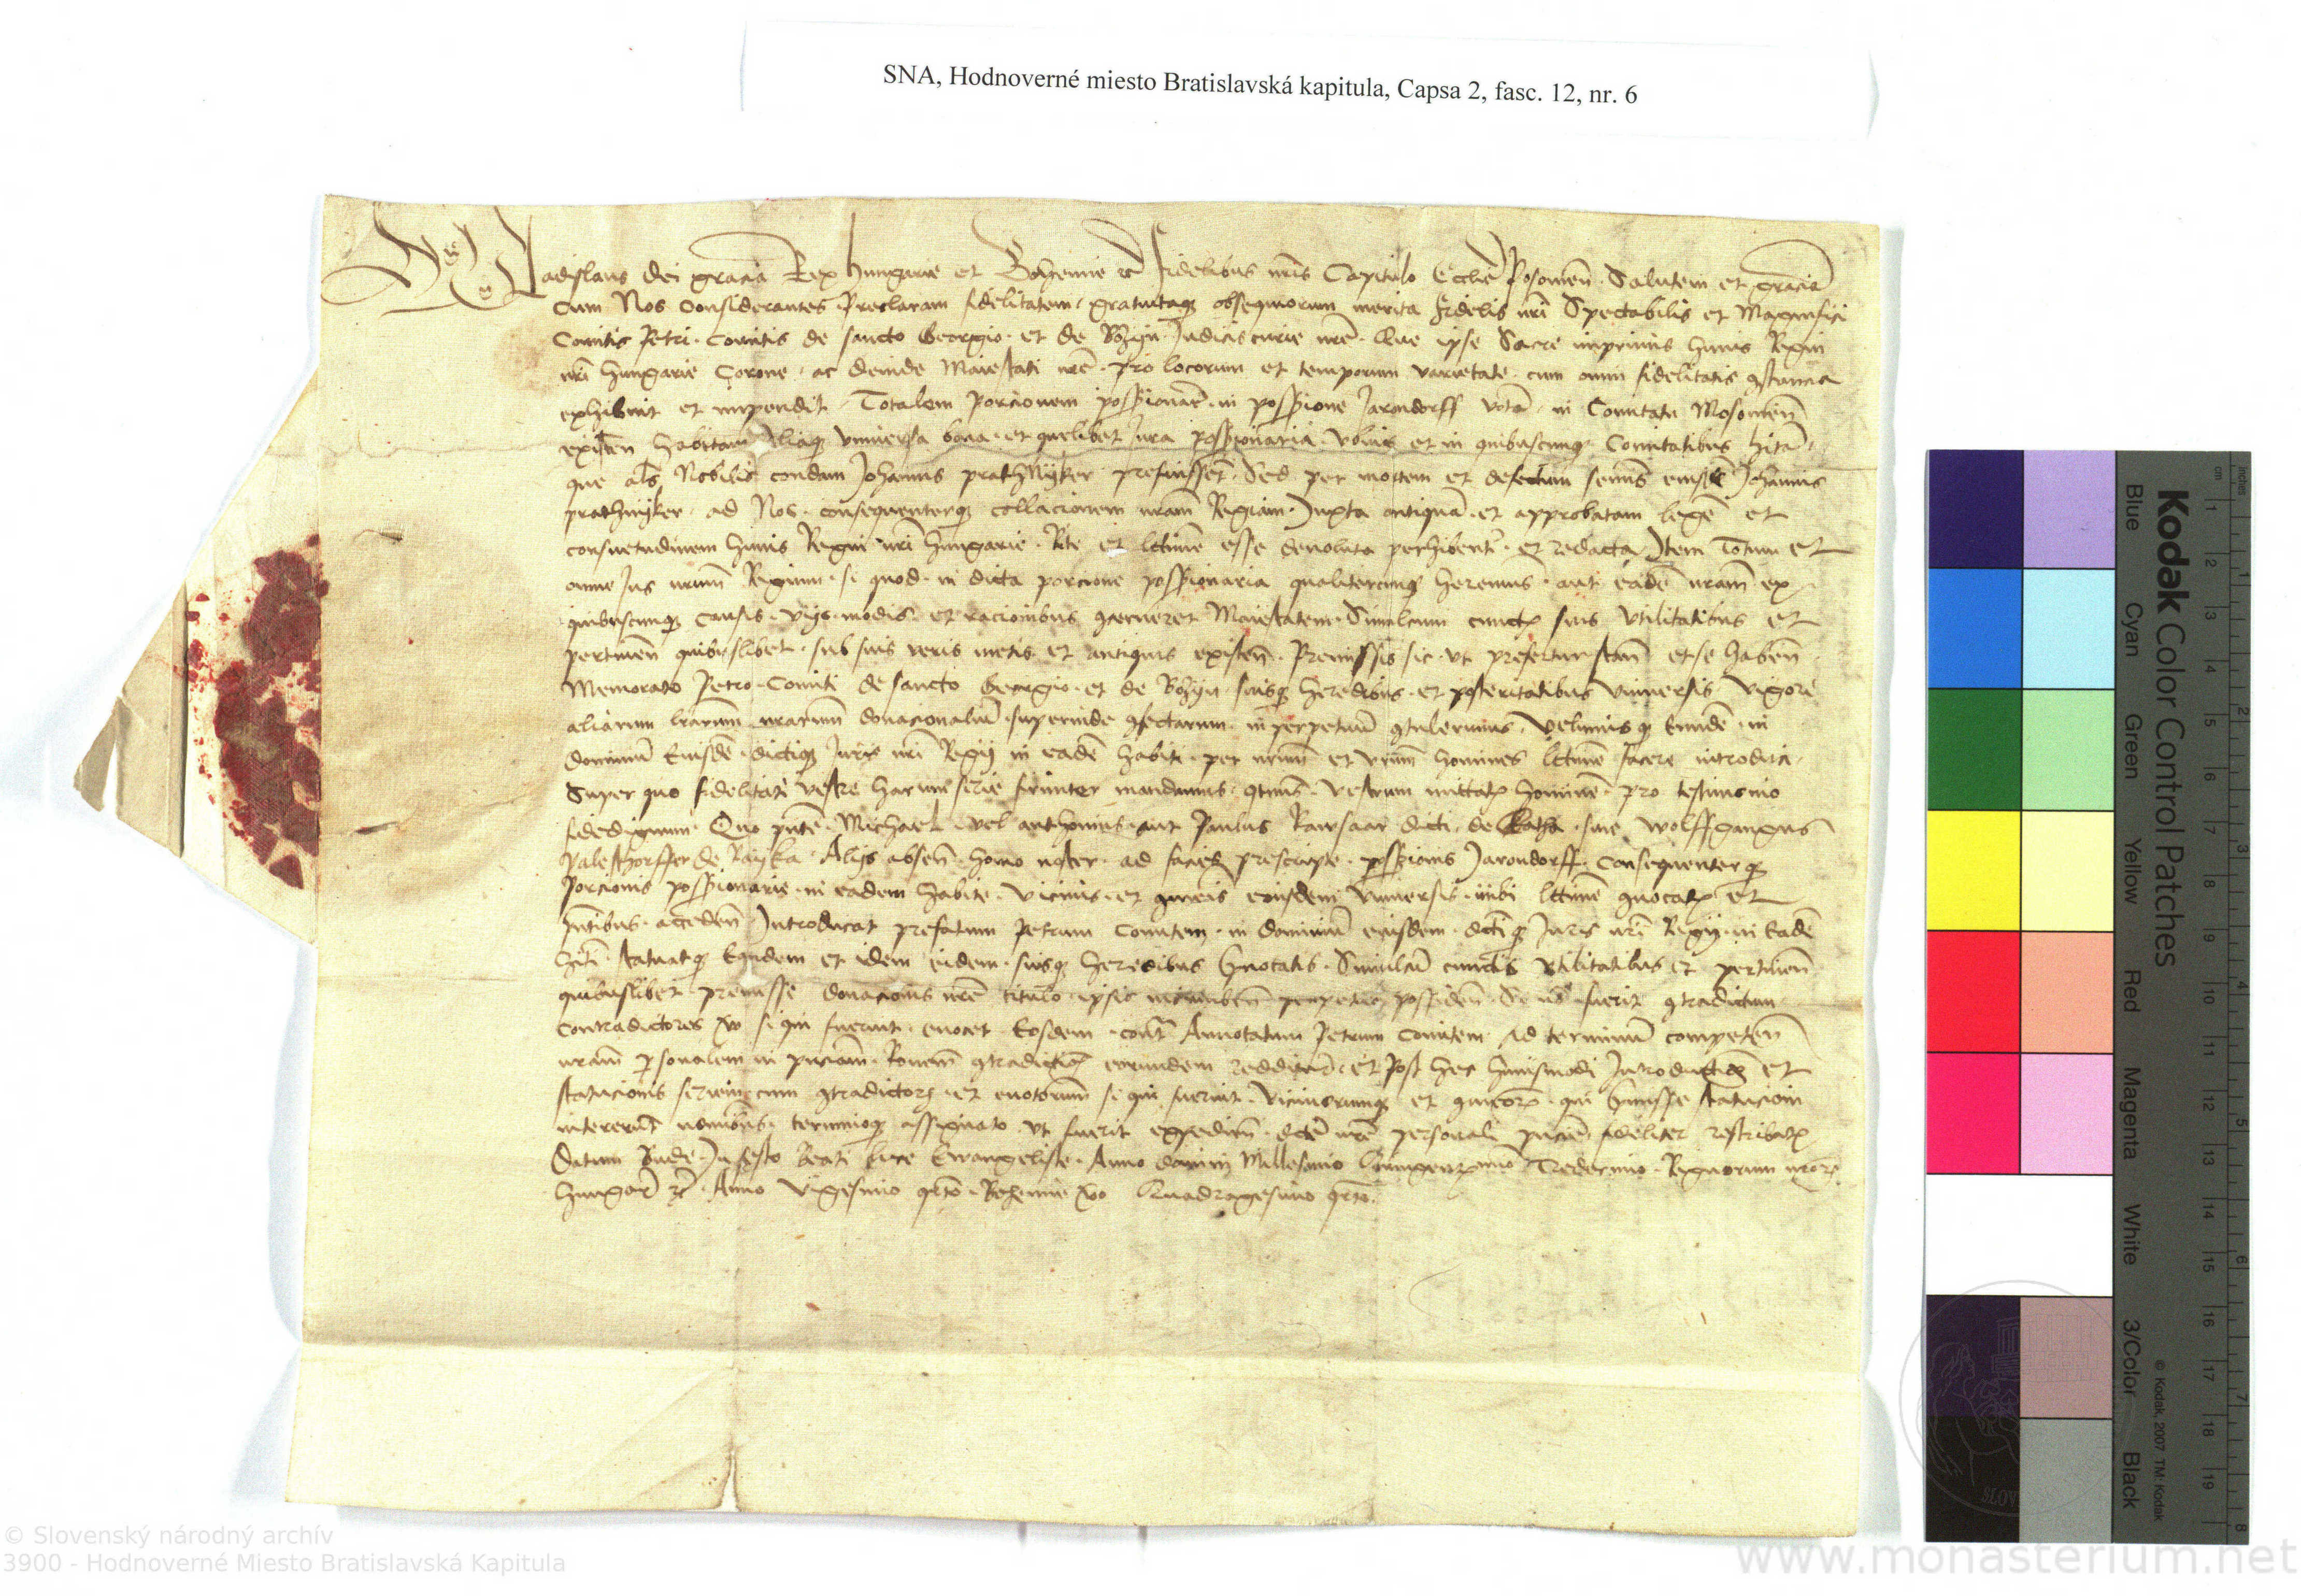 SNA, Hodnoverné miesto Bratislavská kapitula, Capsa 2, fasc. 12, nr. 6
Wladislaus dei gracia Rex hungarie et Bohemie etc fidelibus nris Capitulo Ecclie Posonien Salutem et graciam
Cum Nos Considerantes Preclaram fidelitatem gratuitaque obsequiorum merita fidelis nri Spectabilis et Magnifici
Comitis Petri Comitis de sancto Georgio et de Bozyn Judicis curie nre Que ipse Sacre inprimis huius Regni
nri hungarie Corone ac deinde Maiestati nre pro locorum et temporum varietate cum omni fidelitatis constancia
exhibuit et impendit Totalem Porcionem possionar in possione Jarendorff vota in Comitatu Mosonien
existen habitam Aliaque vniuersa bona et quelibet Jura possionaria vbiuis et in quibuscunque Comitatibus hita
que als Nobilis condam Johannis prathnyker prefuissent Sed per mortem et defectum seminis eiusdem Johannis
prathnyker ad Nos consequenterque collacionem nram Regiam Juxta antiquam et approbatam legem et
consuetudinem huius Regni nri hungarie Rite et lttime esse deuoluta perhibent et redacta Item Totum et
omne Jus nrum Regium si quod in dicta porcione possionaria qualitercunque haberemus aut eadem nram ex
quibuscunque causis vijs modis et racionibus concerneret Maiestatem Simulcum cunctis suis vtilitatibus et
pertinen quibuslibet sub suis veris metis et antiquis existen Premissis sic vt prefertur stan et se haben
Memorato Petro Comiti de sancto Georgio et de Bozyn suisque heredibus et posteritatibus vniuersis vigore
aliarum lrarum nrarum donacionalium superinde confectarum in perpetuum contulerimus velimusque Eundem in
dominium Eiusdem dictique Juris nri Regij in eadem habiti per nrum et vrum homines lttime facere introduci
Super quo fidelitati vestre harum serie firmiter mandamus quatenus vestrum mittatis hominem pro testimonio
fidedignum Quo pnte Michael vel anthonius aut Paulus Karsaar dicti de Katha siue Wolffgangus
Palesthorffer de Rayka Alijs absen homo noster ad facies prescripte possionis Jarondorff consequenterque
Porcionis possionarie in eadem habite vicinis et comtaneis eiusdem vniuersis inibi lttime conuocatis et
pntibus acceden Introducat prefatum Petrum Comitem in dominium eiusdem dictique Juris nri Regij in Eadem
hiti statuatque Eandem et idem eidem suisque heredibus vniuersis Simulcum cunctis vtilitatibus et pertinen
quibuslibet premisse donacionis nre titulo ipsis incumben perpetuo possiden Si non fuerit contradictum
Contradictores vero si qui fuerint euocet Eosdem contra Annotatum Petrum Comitem Ad terminum competen
nram personalem in pnciam Racionem contradictionis eorundem reddituros et Post hec huiusmodi Introductionis et
statucionis seriem cum contradictorum et euocatorum si qui fuerint vicinorumque et comtaneorum qui premisse statucioni
intererunt nominibus terminoque assignato vt fuerit expediens dicte nre personali pncie fideliter rescribatis
Datum Bude In festo Beati luce Ewangeliste Anno domini Millesimo Quingentesimo Tredecimo Regnorum nrorum
hungar etc Anno vigesimo quarto Bohemie vero Quadragesimo quarto
Kodak Color Control Patches
Blue Cyan Green Yellow Red Magenta White 3/Color Black
© Kodak, 2007 TM: Kodak
© Slovenský národný archív
3900 - Hodnoverné Miesto Bratislavská Kapitula
www.monasterium.net